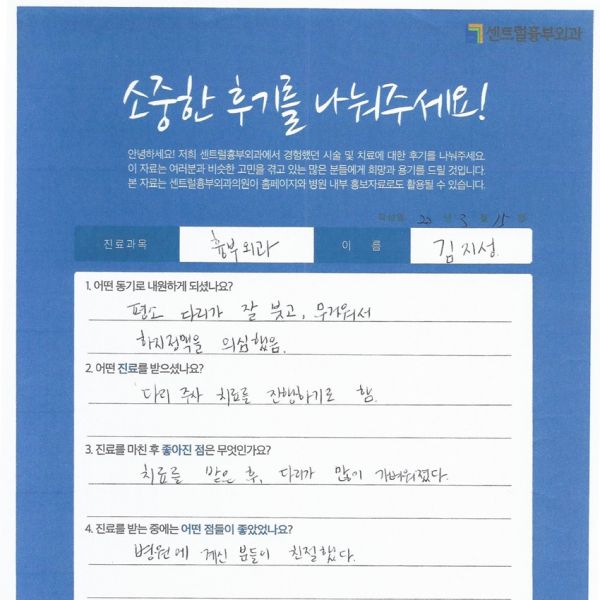 센트럴흉부외과
소중한 후기를 나눠주세요!
안녕하세요! 저희 센트럴흉부외과에서 경험했던 시술 및 치료에 대한 후기를 나눠주세요
이 자료는 여러분과 비슷한 고민을 겪고 있는 많은 분들에게 희망과 용기를 드릴 것입니다.
본 자료는 센트럴흉부외과의원이 홈페이지와 병원 내부 홍보자료로도 활용될 수 있습니다.
작성일 23 년 3 월 15 일
진료과목 흉부외과 이 름 김지성
1. 어떤 동기로 내원하게 되셨나요?
평소 다리가 잘 붓고, 무거워서
하지정맥을 의심했음.
2. 어떤 진료를 받으셨나요?
다리 주사 치료를 진행하기로 함.
3. 진료를 마친 후 좋아진 점은 무엇인가요?
치료를 받은 후, 다리가 많이 가벼워졌다.
4. 진료를 받는 중에는 어떤 점들이 좋았었나요?
병원에 계신 분들이 친절했다.